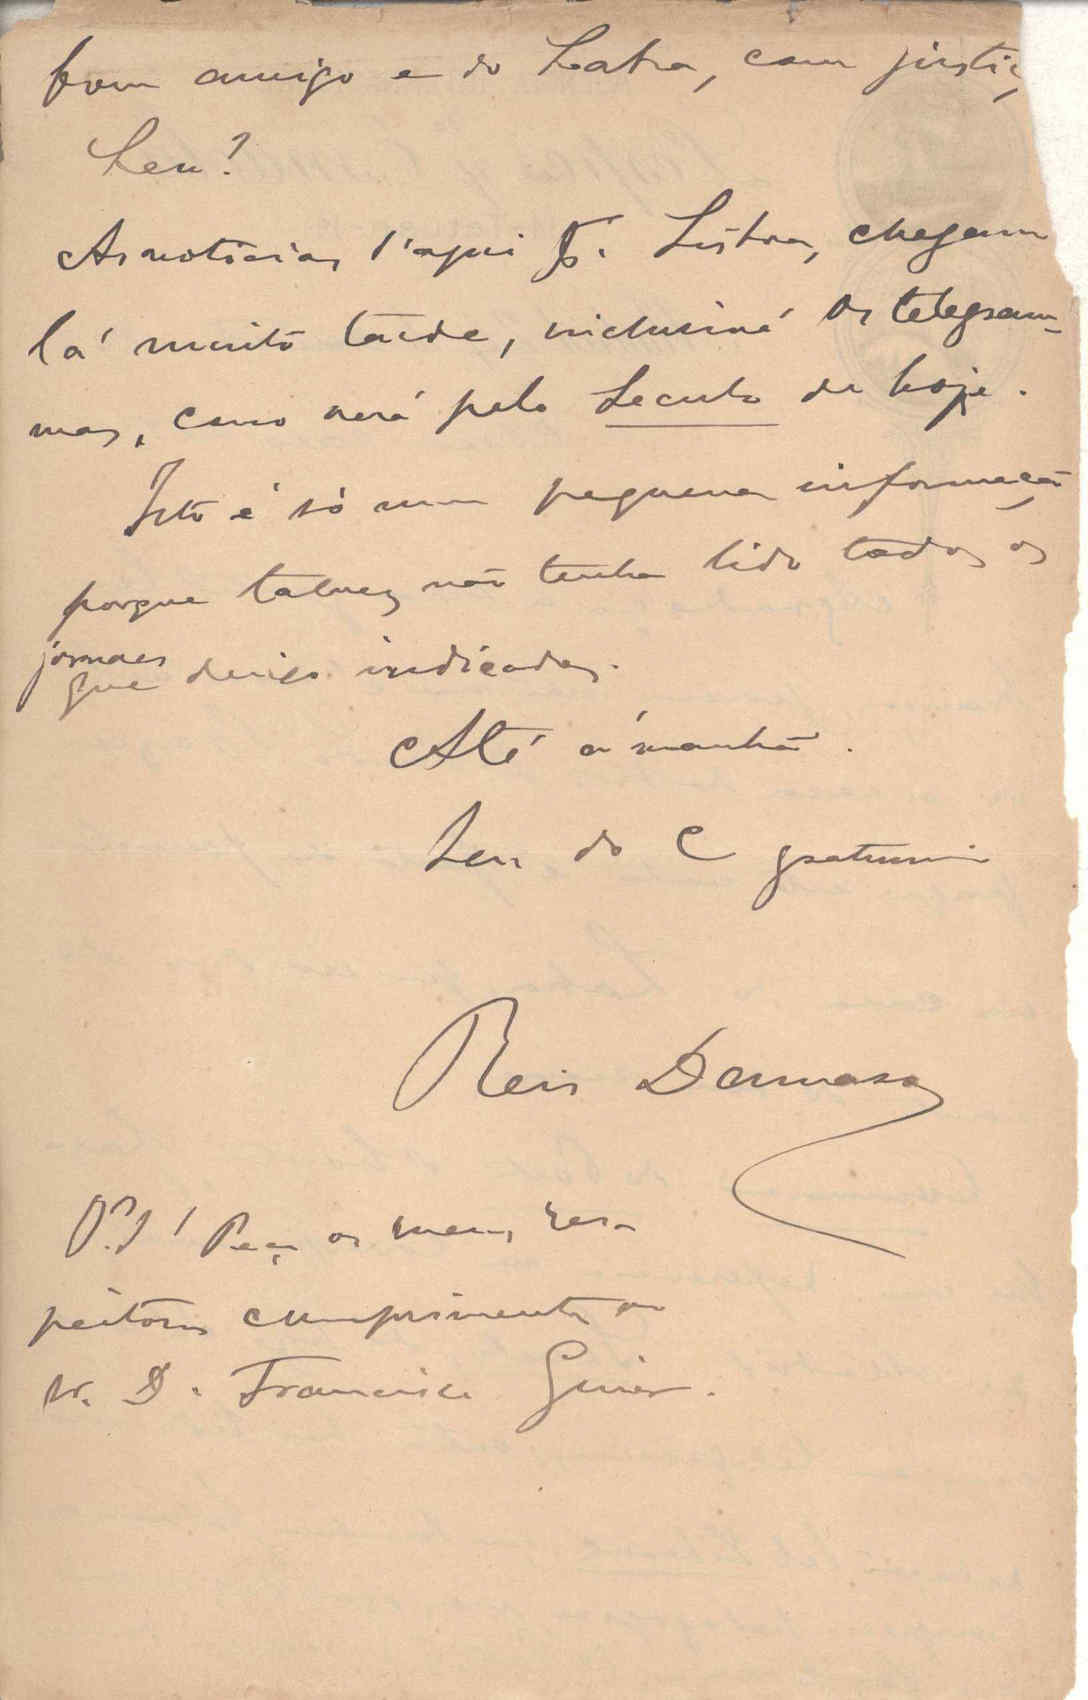 bom amigo e do Labra, com justiç
Leu?
As noticias d'aqui pª. Lisboa, chegam
lá muito tarde, inclusivé os telegram-
mas, como verá pelo Seculo de hoje.
Isto é só uma pequena informação
porque talvez não tenha lido todos os
jornaes
que deixo indicados.
Até a'manhã.
Seu do C gratissimo
Reis Damaso
P.S! Peço os meus res-
peitosos cumprimentos ao
Sr. D. Francisco Giner.